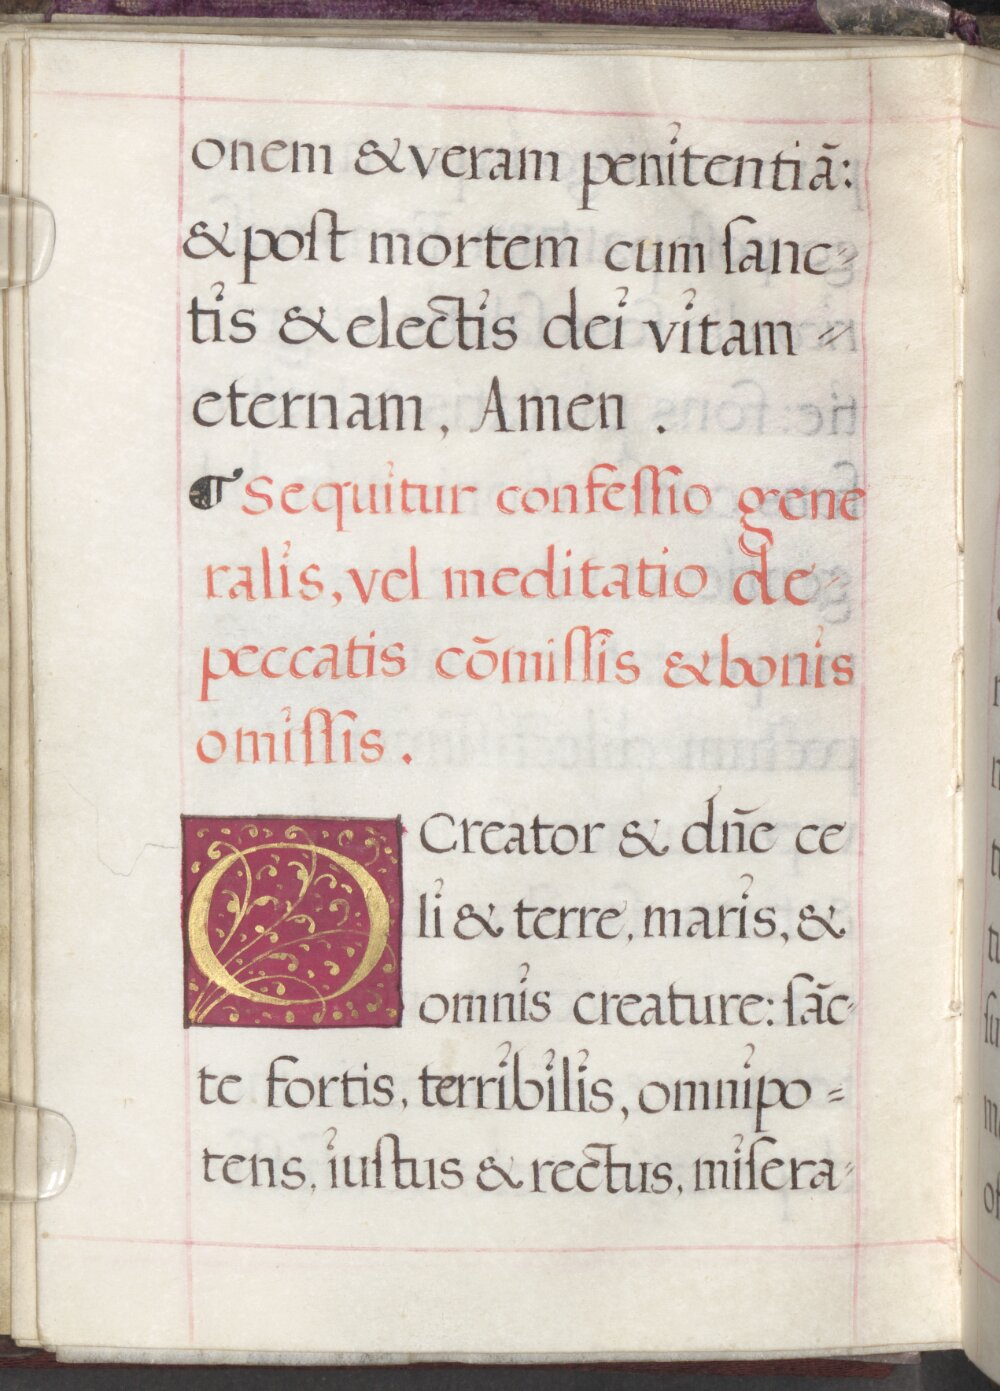 onem & veram penitentiā:
& poſt mortem cum ſanc⸗
tis & electis dei vitam ⸗
eternam, Amen .
¶ Sequitur confeſſio gene
ralis, vel meditatio de⸗
peccatis cōmiſſis & bonis
omiſſis .
O Creator & dn̄e ce
li & terre, maris, &
omnis creature: ſāc⸗
te fortis, terribilis, omnipo⸗
tens, iuſtus & rectus, miſera⸗